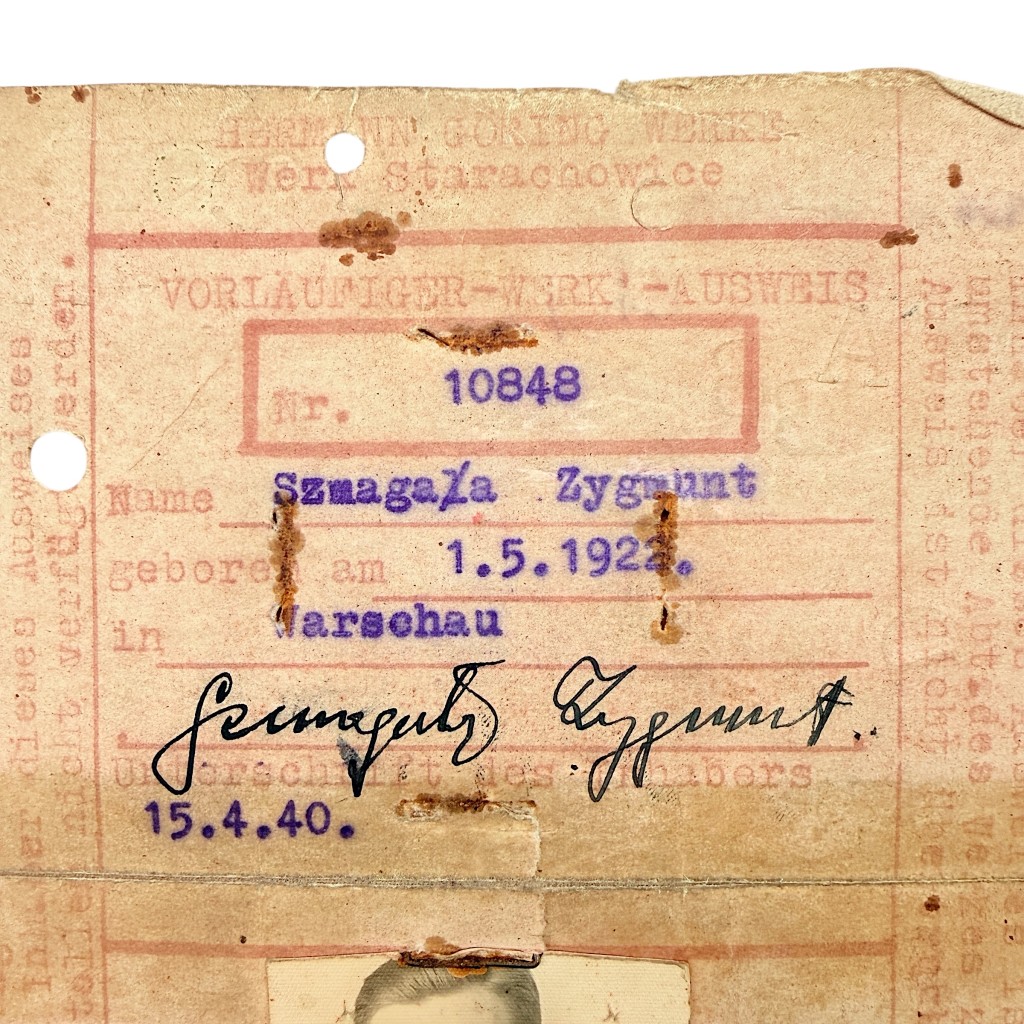 HERMANN GÖRING WERKE
Werk Starachowice
VORLÄUFIGER-WERK'-AUSWEIS
Nr. 10848
Name Szmagała Zygmunt
geboren am 1.5.1922.
in Warschau
Szmagała Zygmunt.
Unterschrift des Inhabers
15.4.40.
dieses Ausweises
nicht verfügt werden.
Ausweis ist nicht